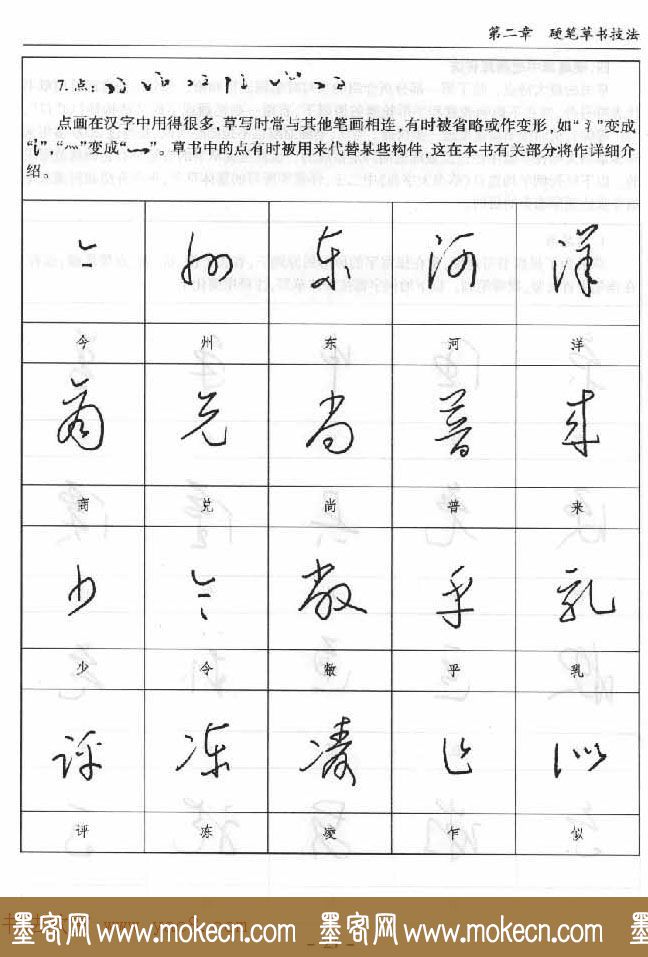 第二章 硬笔草书技法
7.点:
点画在汉字中用得很多,草写时常与其他笔画相连,有时被省略或作变形,如“⺀”变成
“讠”,“爫”变成“⺀”。草书中的点有时被用来代替某些构件,这在本书有关部分将作详细介
绍。
今 州 东 河 洋
今 州 东 河 洋
商 兑 尚 普 来
商 兑 尚 普 来
少 令 敞 乎 乳
少 令 敞 乎 乳
评 冻 凌 乍 似
评 冻 凌 乍 似
墨客网 www.mokecn.com 墨客网 www.mokecn.com 墨客网